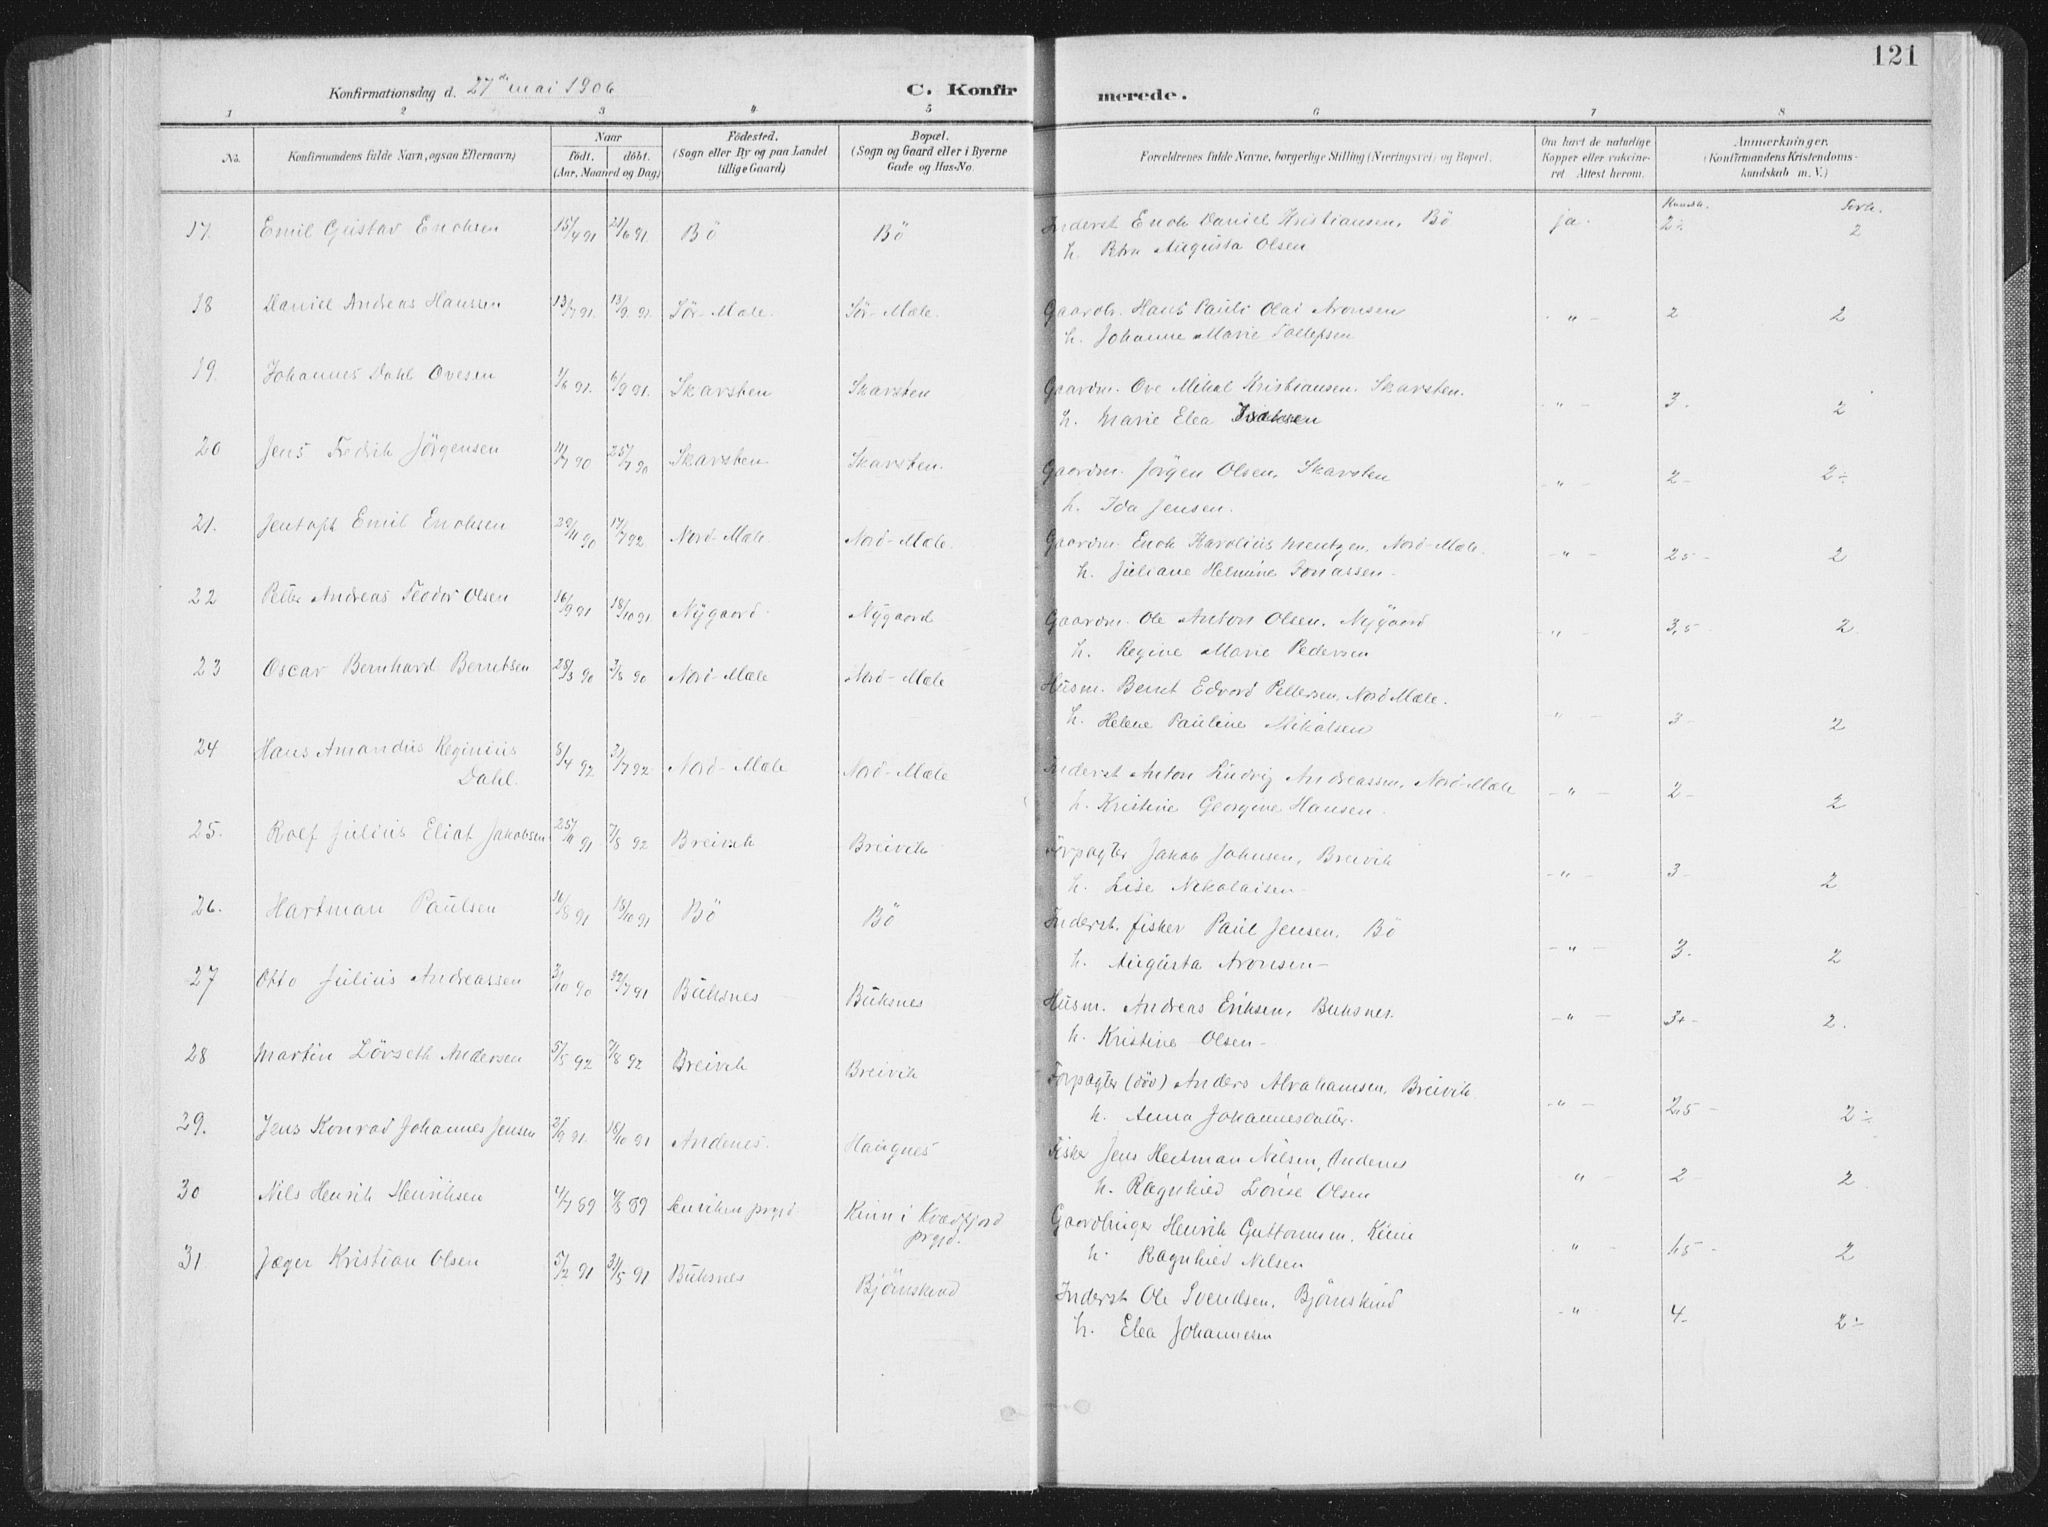 121
Konfirmationsdag d. 27de mai 1906 C. Konfirmerede.
1 2 3 4 5 6 7 8
No. Konfirmandens fulde Navn, ogsaa Efternavn) Naar født. døbt. (Aar, Maaned og Dag) Fødested. (Sogn eller By og paa Landet tillige Gaard) Bopæl. (Sogn og Gaard eller i Byerne Gade og Hus-No. Forældrenes fulde Navne, borgerlige Stilling (Næringsvei) og Bopæl. Om havt de naturlige Kopper eller vakcineret. Attest herom. Anmærkninger. (Konfirmandens Kristendomskundskab m. V.)
Kundsk. Forh.
17 Emil Gustav Enoksen 15/4 91 21/6 91. Bö Bö Inderst Enok Daniel Kristiansen, Bö ja. 2÷ 2
h. Petra Augusta Olsen
18 Daniel Andreas Hanssen 13/7 91. 13/9 91. Sör-Mæle. Sör-Mæle. Gaardbr. Hans Pauli Olai Aronsen - " - 2 2
h. Johanne Marie Tollefsen
19. Johannes Dahl Ovesen 1/6 91. 6/9 91. Skarsten Skarsten Gaardm. Ove Mikal Kristiansen. Skarsten. - " - 3. 2
h. Marie Elea Isaksen
20 Jens Fredrik Jörgensen 11/7 90 25/7 90 Skarsten Skarsten. Gaardm. Jörgen Olsen, Skarsten - " - 2- 2÷
h. Ida Jensen.
21. Jentoft Emil Enoksen 29/11 90 17/7 92 Nord-Mæle. Nord-Mæle. Gaardm. Enok Karolius Mentzen, Nord-Mæle. - " - 2,5 - 2
h. Juliane Helmine Jonassen-
22 Petter Andreas Teodor Olsen 16/9 91 18/10 91 Nygaard Nygaard Gaardm. Ole Anton Olsen, Nygaard " - 3,5 - 2
h. Regine Marie Pedersen
23 Oscar Bernhard Berntsen 28/3 90 3/8 90 Nord-Mæle Nord-Mæle Husm. Bernt Edvard Pettersen, Nord Mæle. " - 3- 2
h. Helene Pauline Mikalsen
24 Hans Amandus Reginius 8/4 92 31/7 92 Nord-Mæle Nord-Mæle Inderst Anton Ludvig Andreassen, Nord-Mæle - " - 2- 2
Dahl. h. Kristine Georgine Hansen.
25. Rolf Julius Eliat Jakobsen 25/11 91 7/8 92 Breivik Breivik Forpagter Jakob Johnsen, Breivik - " - 3- 2
h. Lise Nikolaisen-
26. Hartman Paulsen 10/8 91 18/10 91 Bö Bö Inderst. fisker Paul Jensen, Bö - " - 3. 2
h. Augusta Aronsen-
27 Otto Julius Andreassen 3/10 90 12/7 91 Buksnes Buksnes Husm. Andreas Eriksen, Buksnes. - " - 3+ 2.
h. Kristine Olsen-
28 Martin Lövseth Andersen 5/5 92 7/8 92 Breivik Breivik Forpagter (död) Anders Abrahamsen, Breivik - " - 2,5 - 2÷
h. Anna Johannesdatter.
29. Jens Konrad Johannes Jensen 2/9 91. 18/10 91 Andenes. Haugnes Fisker Jens Heitman Nilsen, Andenes " - 2- 2
h. Ragnhild Lovise Olsen
30 Nils Henrik Henriksen 4/7 89 4/8 89 prgjd Kinn i Kvædfjord prgjd. Gaardbruger Henrik Guttormsen, Kinn " - 1,5 - 2
h. Ragnhild Nilsen
31 Jæger Kristian Olsen 5/2 91 31/5 91 Buksnes Björnskind Inderst Ole Svendsen, Björnskind " - 4- 2÷
h. Elea Johannesen